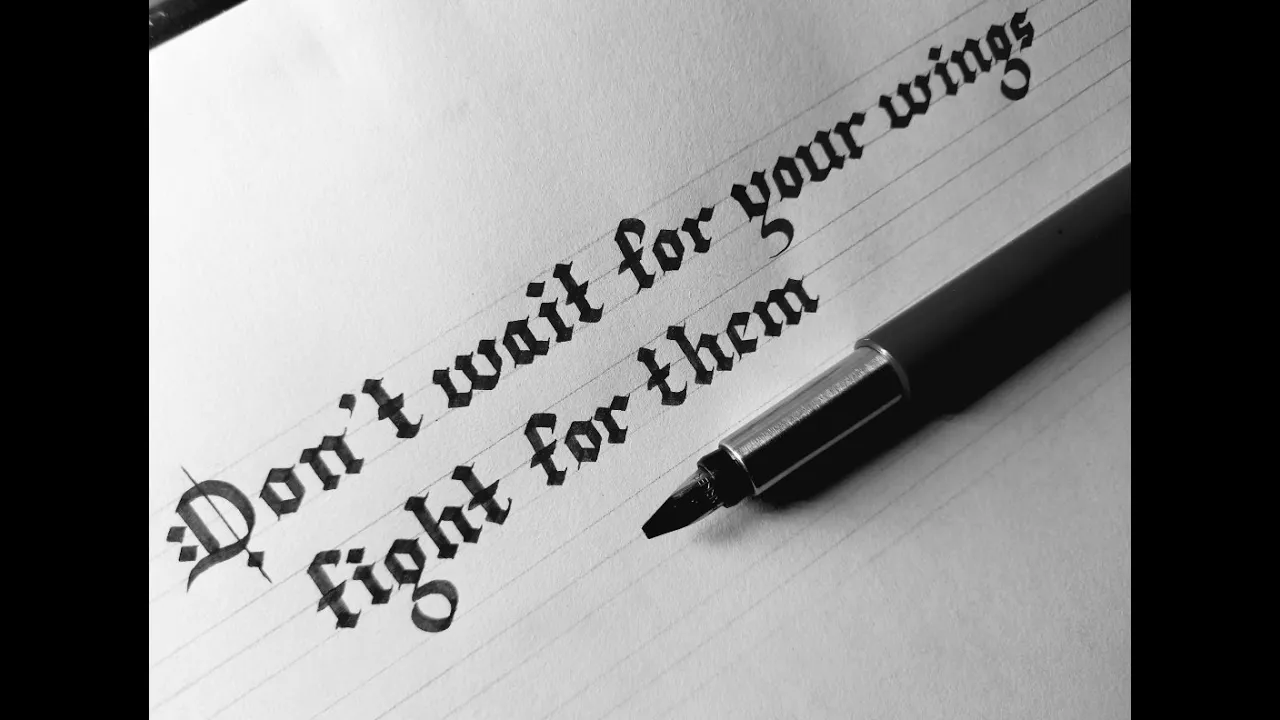 Don't wait for your wings
fight for them